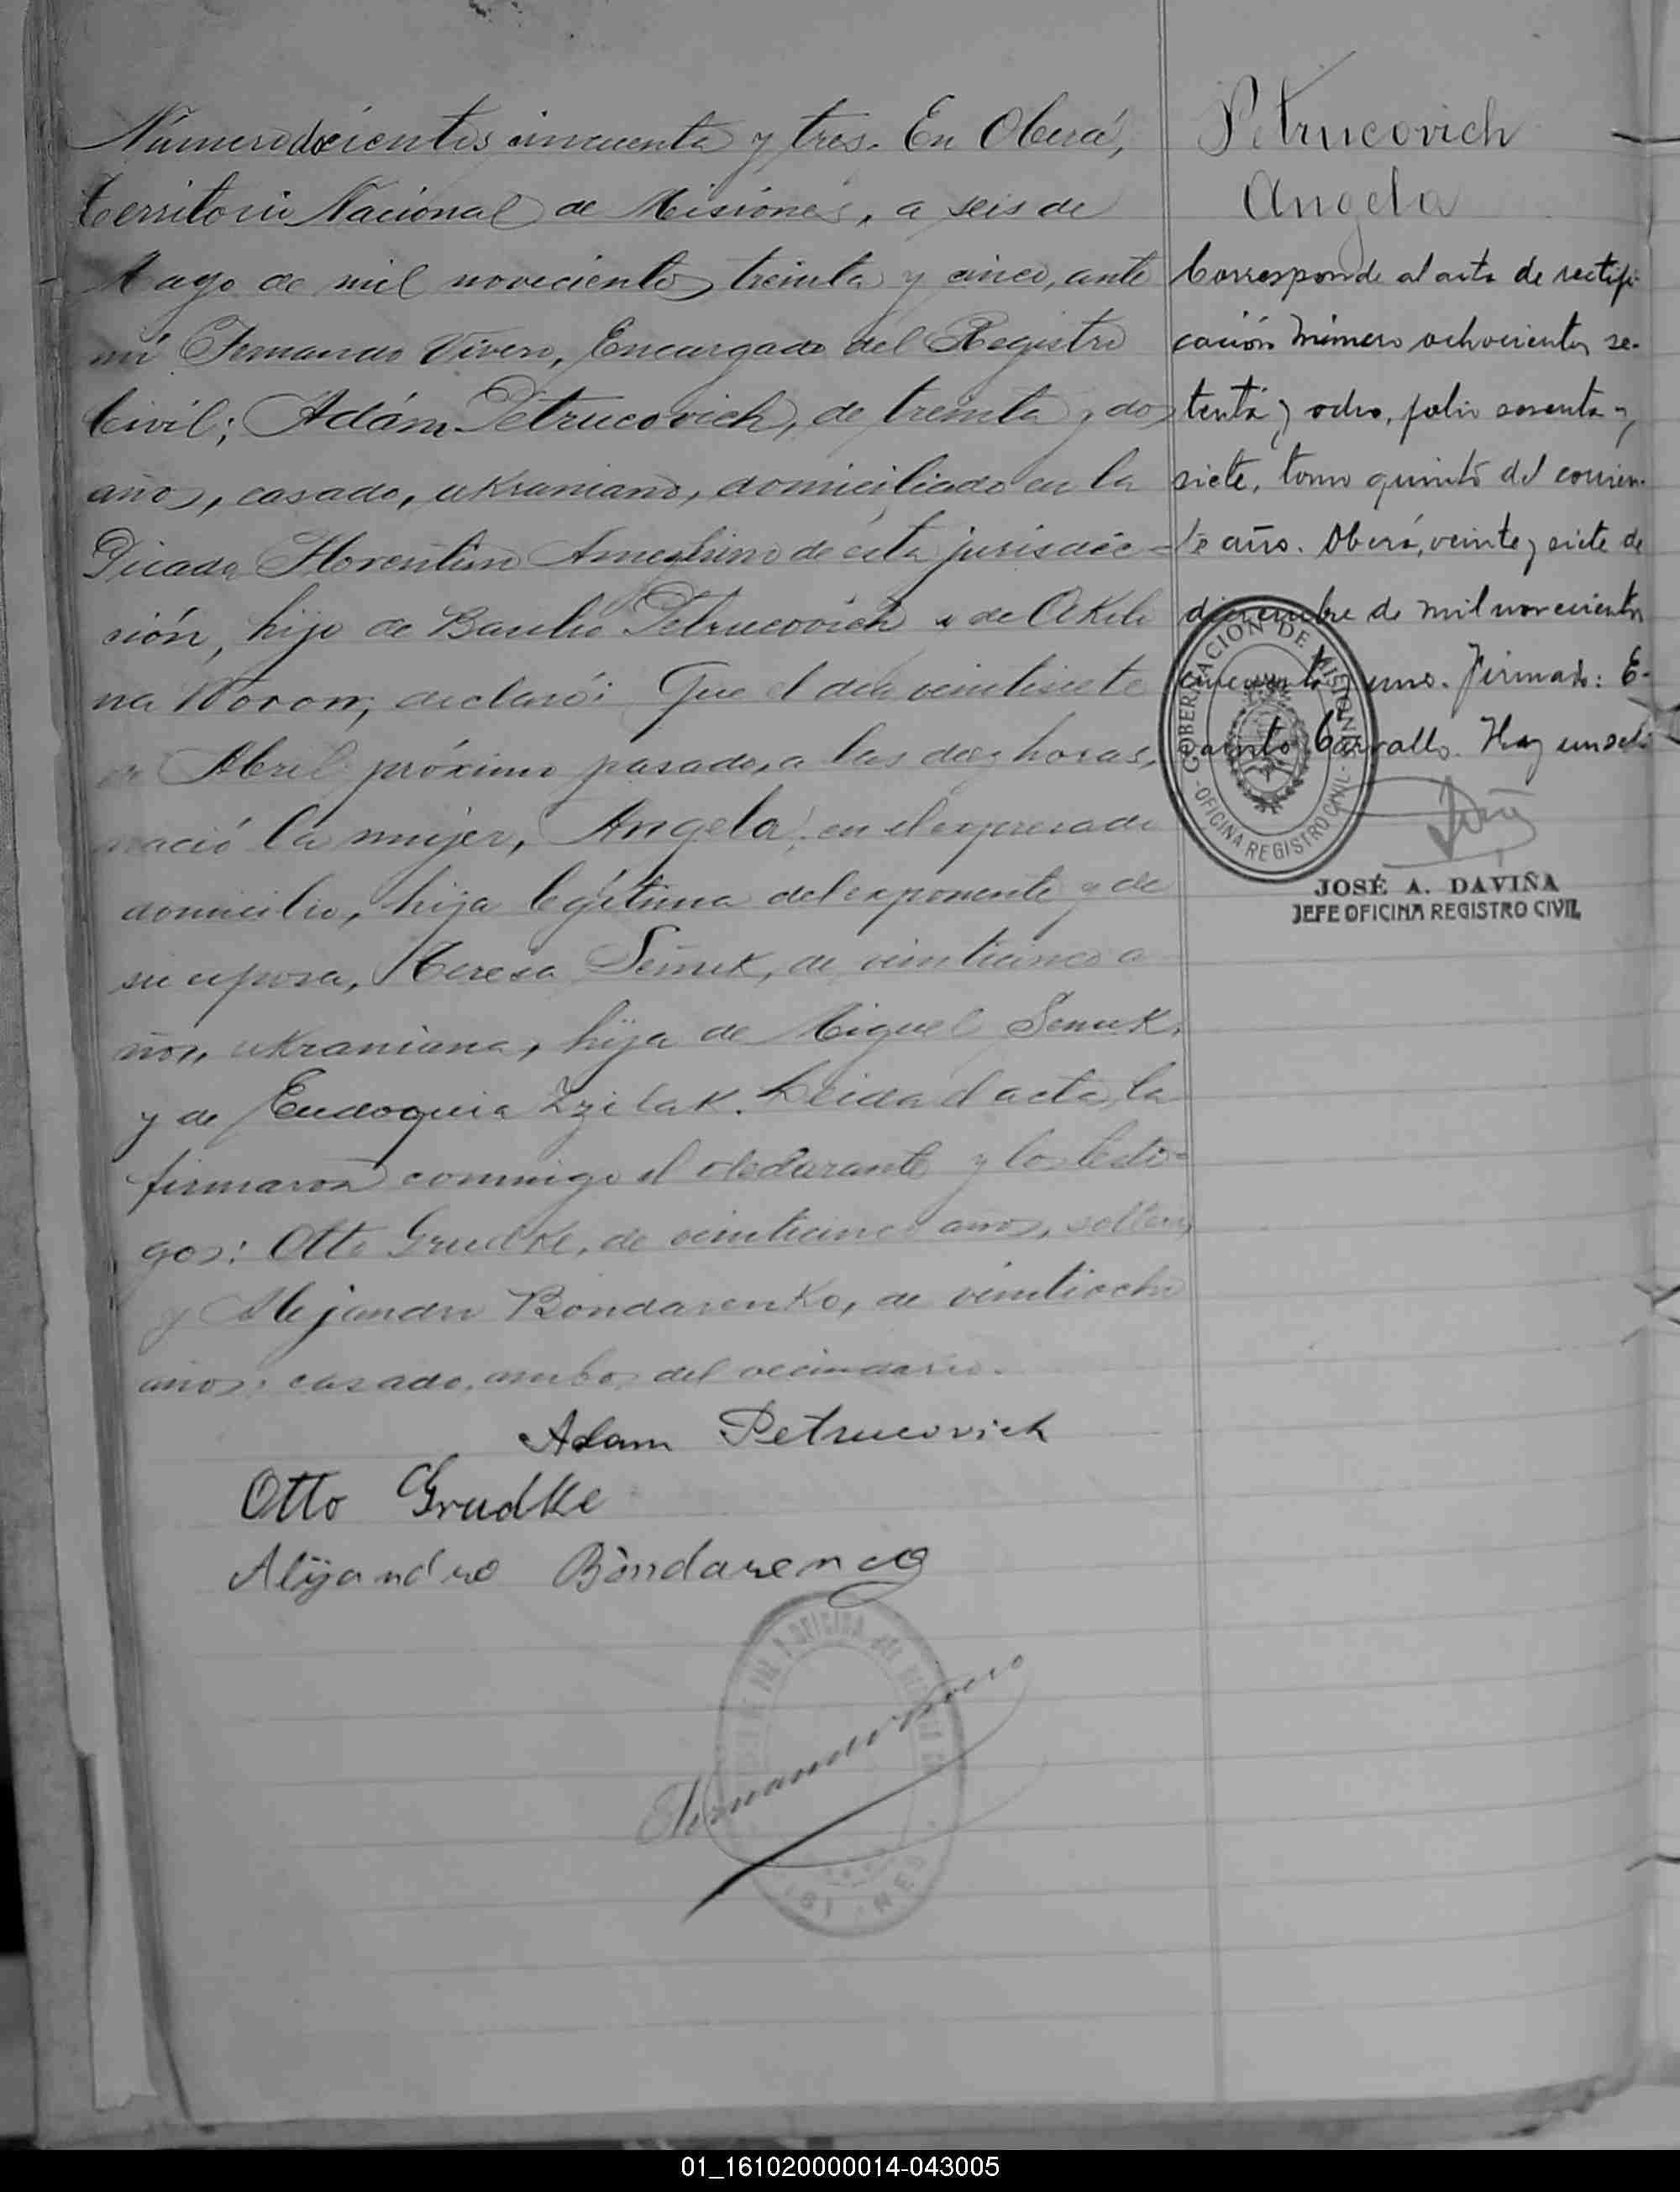 Número doscientos cincuenta y tres. En Oberá,
territorio Nacional de Misiones, a seis de
Mayo de mil novecientos treinta y cinco, ante
mi Fernando Vivero, Encargado del Registro
Civil; Adám Petrucovich, de treinta y dos
años, casado, ukraniano, domiciliado en la
Picada Florentino Ameghino de ésta jurisdic-
ción, hijo de Basilio Petrucovich y de Akili
na Woron, declaró: Que el dia veintisiete
de Abril próximo pasado, a las diez horas,
nació la mujer, Angela, en el expresado
domicilio, hija legítima del exponente y de
su esposa, Teresa Semuk, de veinticinco a
ños, ukraniana, hija de Miguel Semuk,
y de Eudoquia. Leida el acta, la
firmaron conmigo el declarante y los testi-
gos: Otto Grudke, de veinticinco años, soltero,
y Alejandro Bondarenko, de veintiocho
años, casado, ambos del vecindario.
Adam Petrucovich
Otto Grudke
Alijandro Bondarenco
Fernando Vivero
Petrucovich
Angela
Corresponde al acta de rectifi-
cación número ochocientos se-
tenta y ocho, folio sesenta y
siete, tomo quinto del corrien-
te año. Oberá, veinte y siete de
diciembre de mil novecientos
cincuenta y uno. Firmado: E-
varisto Carvallo. Hay un sello
GOBERNACION DE MISIONES
- OFICINA REGISTRO CIVIL -
JOSÉ A. DAVIÑA
JEFE OFICINA REGISTRO CIVIL
01_161020000014-043005